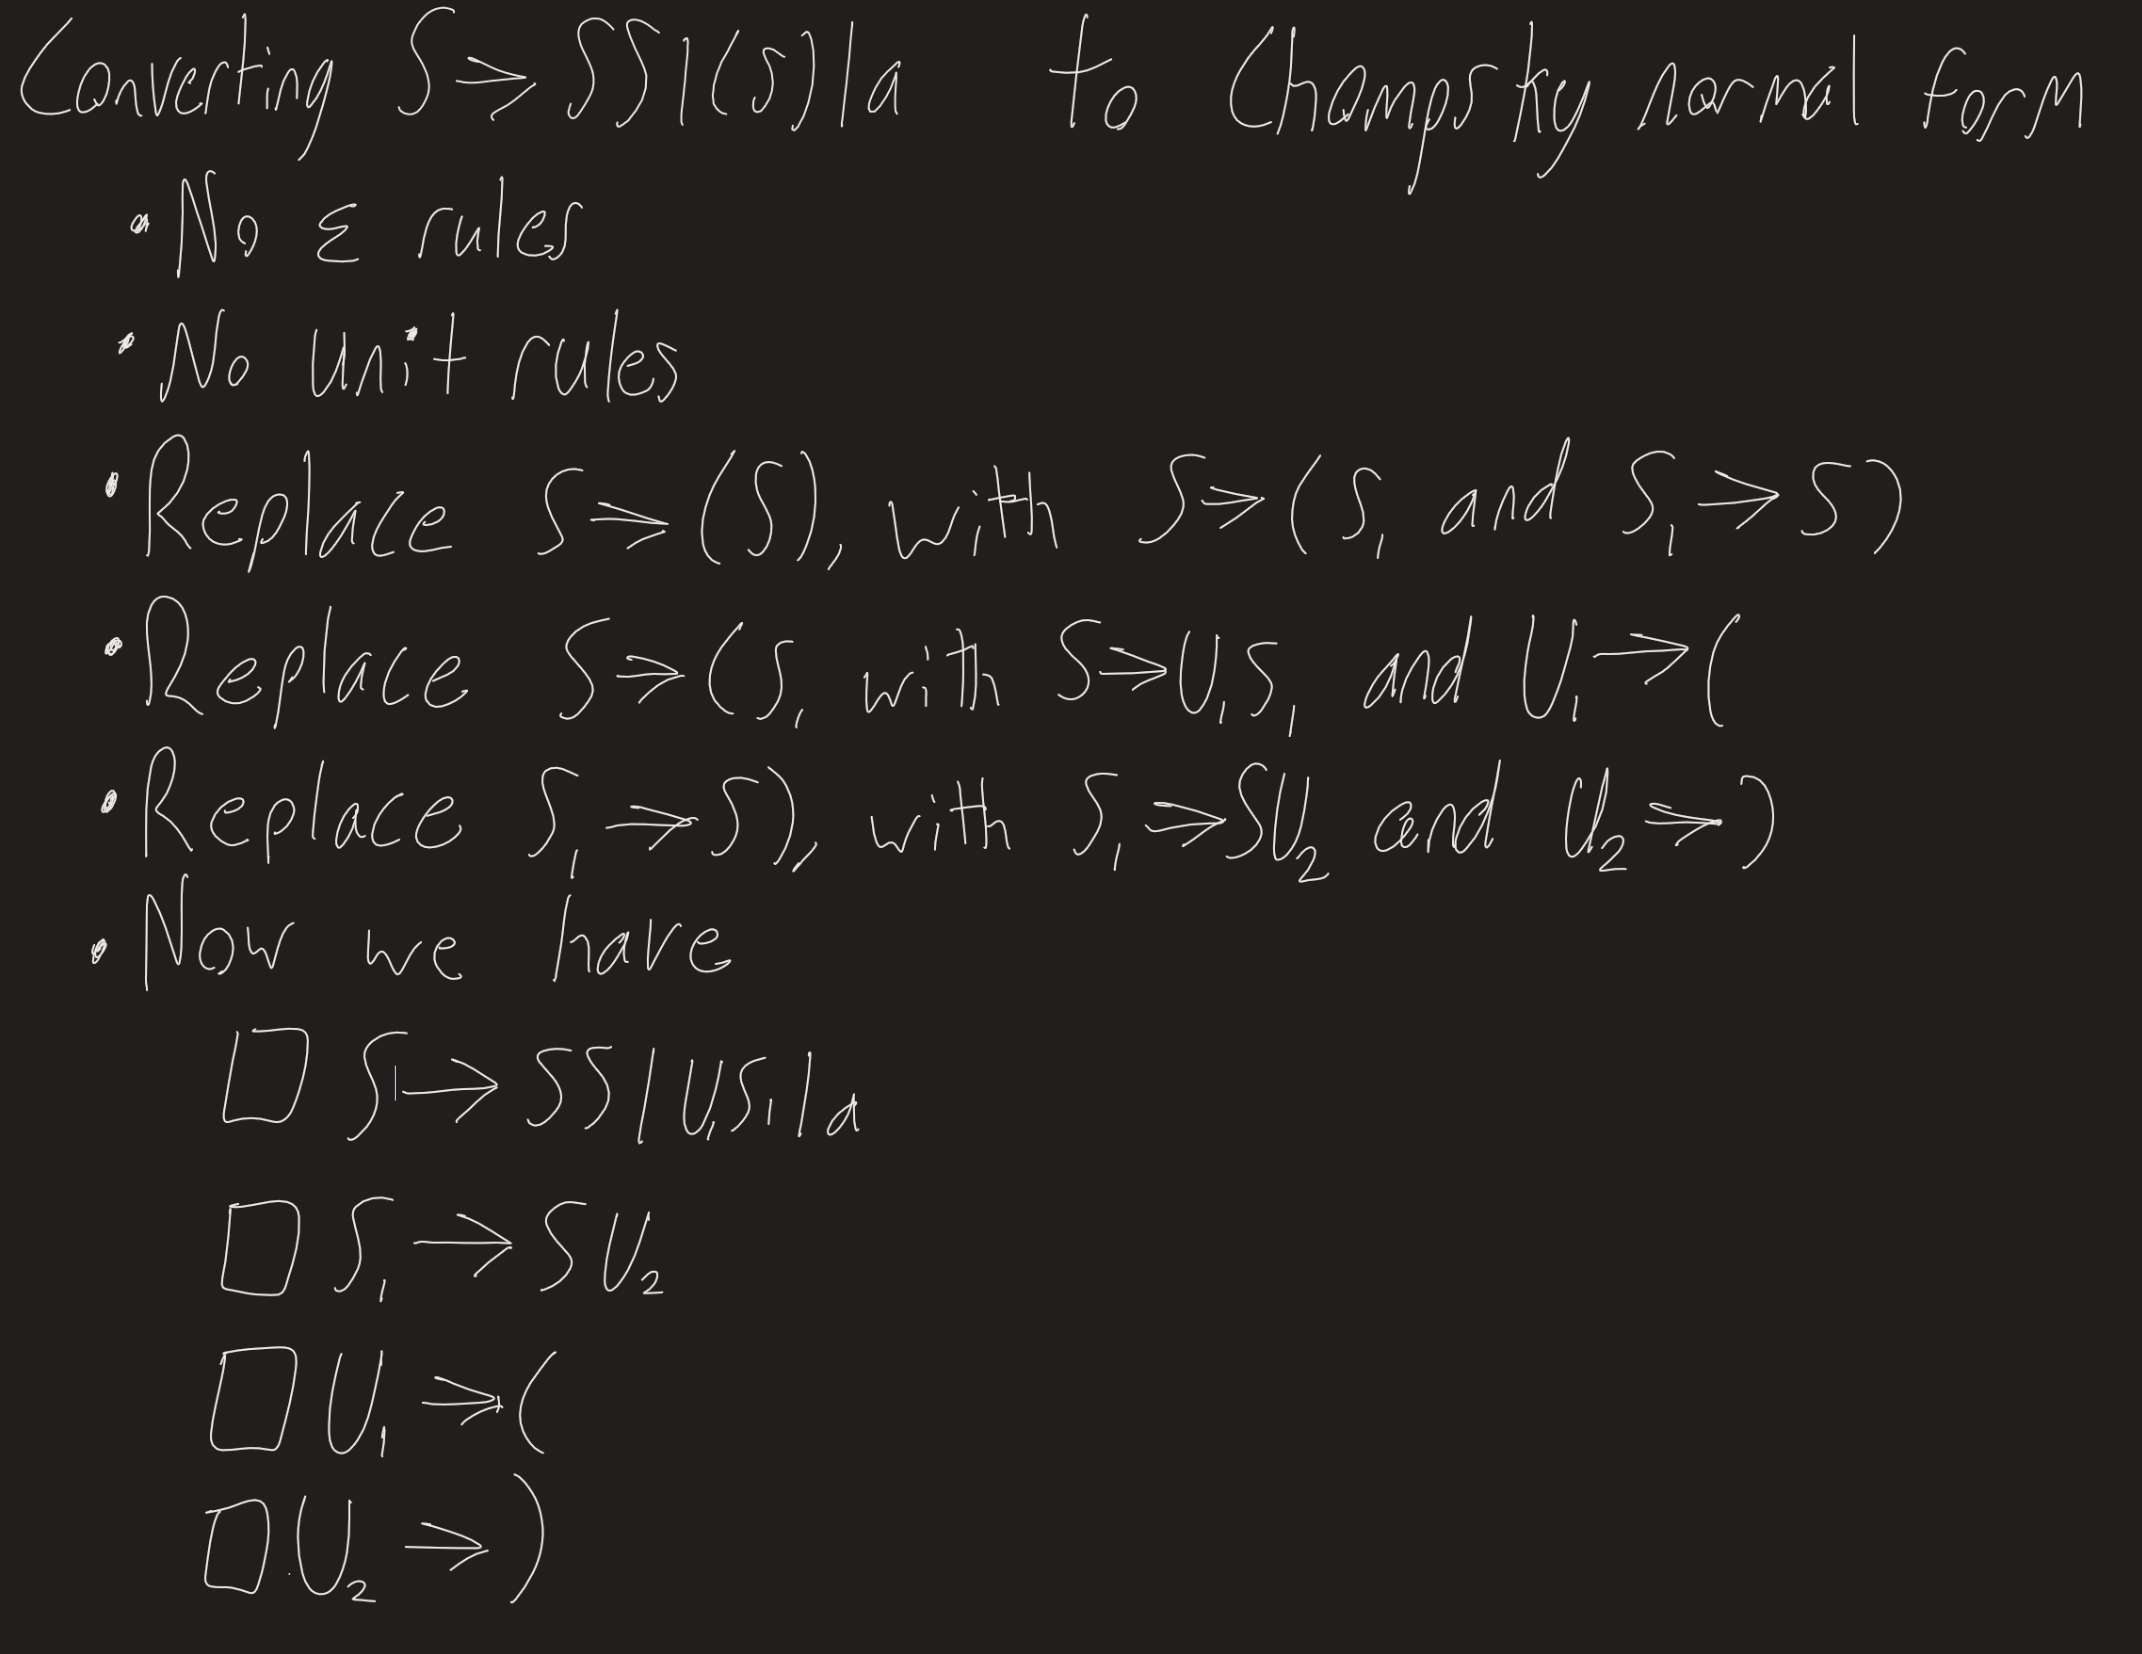 Converting S → SS | (S) | a to Chompsky normal form
• No ε rules
• No unit rules
• Replace S → (S), with S → (S₁ and S₁ → S)
• Replace S → (S₁ with S → U₁S₁ and U₁ → (
• Replace S₁ → S), with S₁ → SU₂ and U₂ → )
• Now we have
□ S → SS | U₁S₁ | a
□ S₁ → SU₂
□ U₁ → (
□ U₂ → )